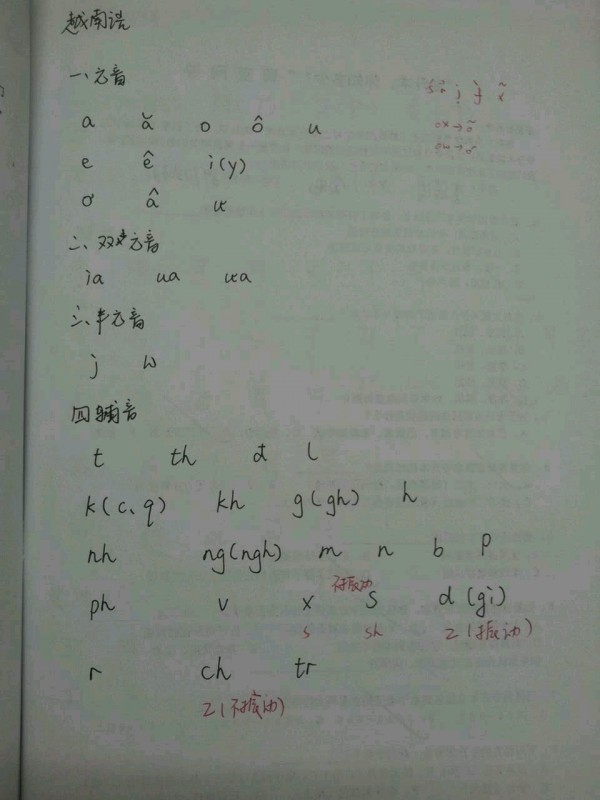 越南语
一、元音
a ă o ô u
e ê i(y)
ơ â ư
二、双元音
ia ua ưa
三、半元音
j w
四、辅音
t th đ l
k(c、q) kh g(gh) h
nh ng(ngh) m n b p
不振动
ph v x s d(gi)
s sh z(振动)
r ch tr
z(不振动)